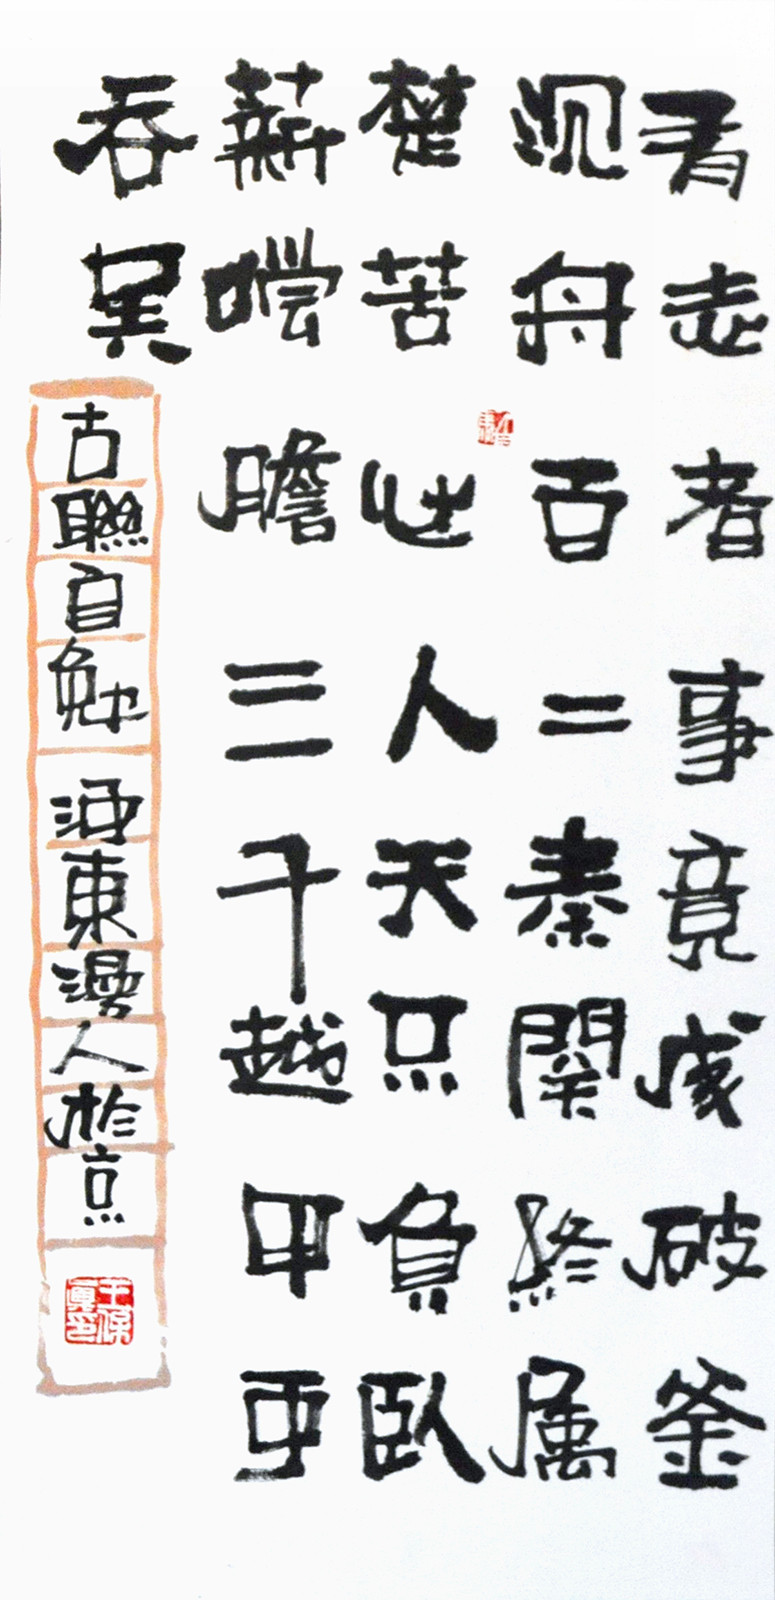 有志者事竟成破釜
沉舟百二秦関終属
楚苦心人天不負臥
薪嚐膽三千越甲可
吞吴
古聯自勉河東漫人於京